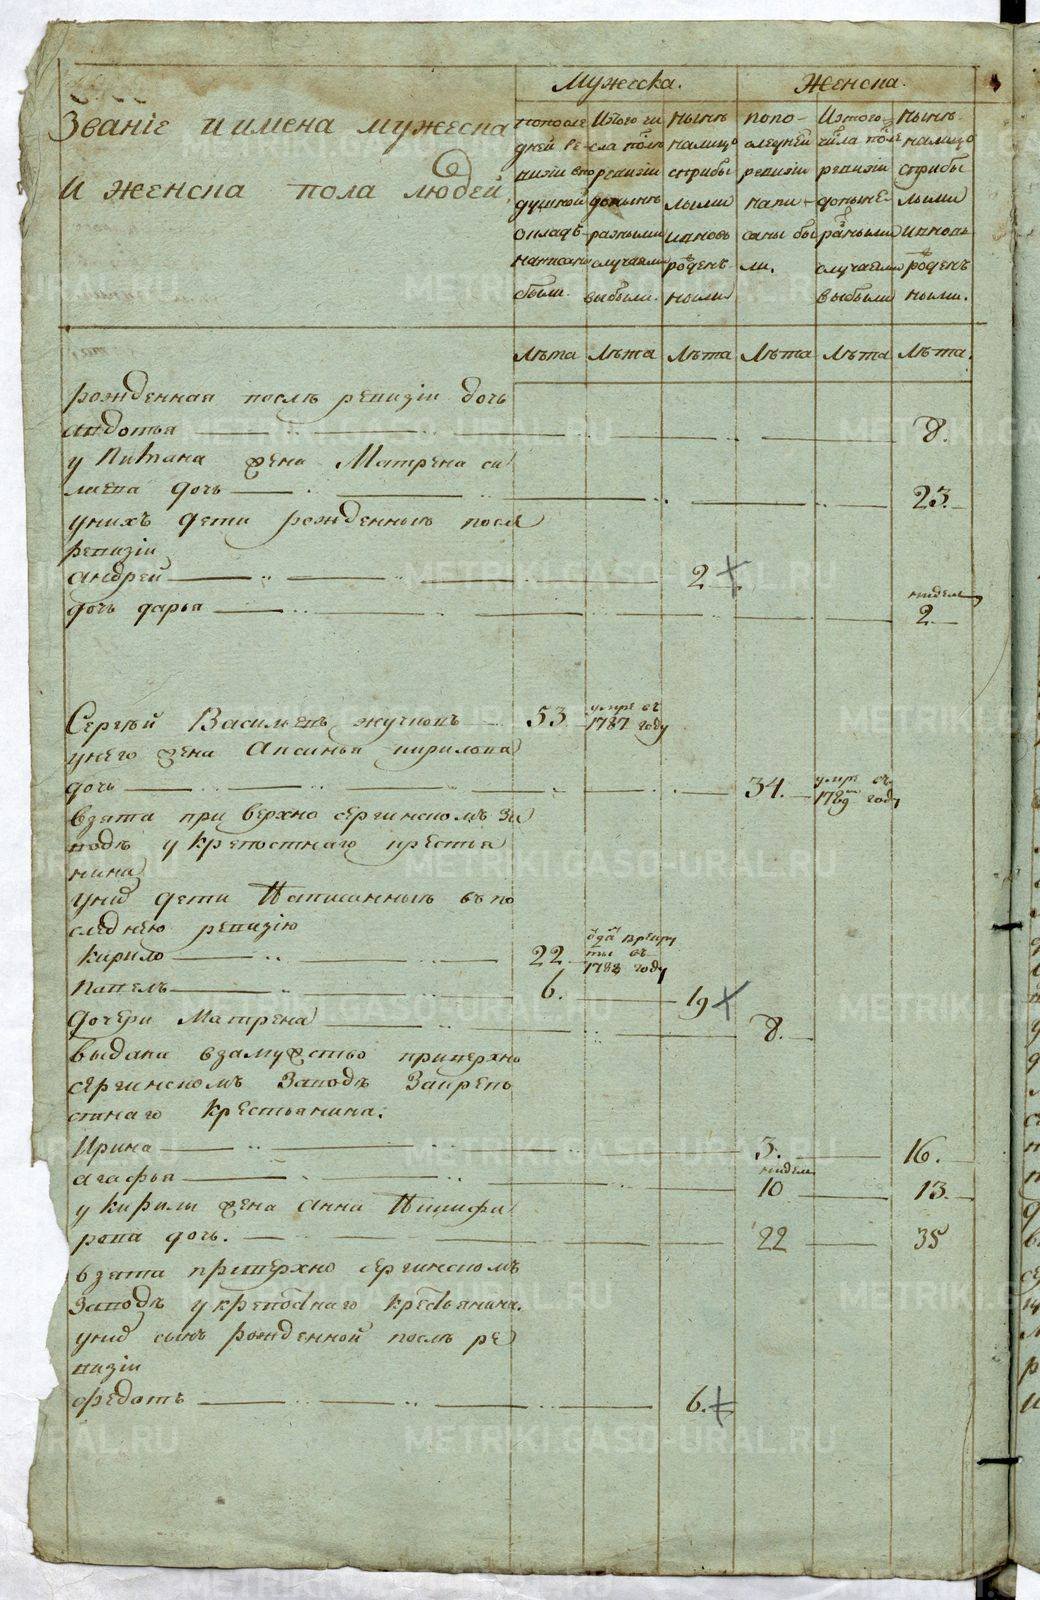 Мужеска.
Женска.
Званіе и имена мужеска
и женска пола людей
по после
дней ре
визіи въ по
душной
окладъ
написаны
были.
Изтого чи
сла послѣ
ревизіи
доныне
разными
случаями
выбыли.
Нынѣ
налицо
сприбы
лыми
ивновь
рожден
ными
по по-
следней
ревизіи
напи-
саны бы
ли.
Изтого
числа послѣ
ревизіи
доныне-
разными
случаями
выбыли
Нынѣ
налицо
сприбы
лыми
ивновь
рожден
ными.
Лѣта Лѣта Лѣта Лѣта Лѣта Лѣта.
рожденная послѣ ревизіи дочь
авдотья 8.
у жена Матрена са
вельева дочь 23.
унихъ дети рожденныя после
ревизіи
андрей 2
дочь дарья недель 2
Сергей Васильевъ жучковъ 53 умре въ 1787 году
унего жена Аксинья кирилова
дочь 34. умре въ 1789 году
взята при верхно сергинскомъ за
водѣ у крепостнаго крестья
нина
уних дети написанныя въ по
следнею ревизію
кирило 22 отдан в рекру ты въ 1788 году
павелъ 6. 19
дочери Матрена 8.
выдана взамужство приверхно
сергинскомъ заводѣ закрепо
стнаго крестьянина.
Ирина 3. 16.
агафья недель 10 13.
у кирилы жена анна Никифо
рова дочь. 22 35
взята приверхно сергинскомъ
заводѣ укрепостнаго крестьянина.
уних сынъ рожденной послѣ ре
визіи
федотъ 6.
METRIKI.GASO-URAL.RU